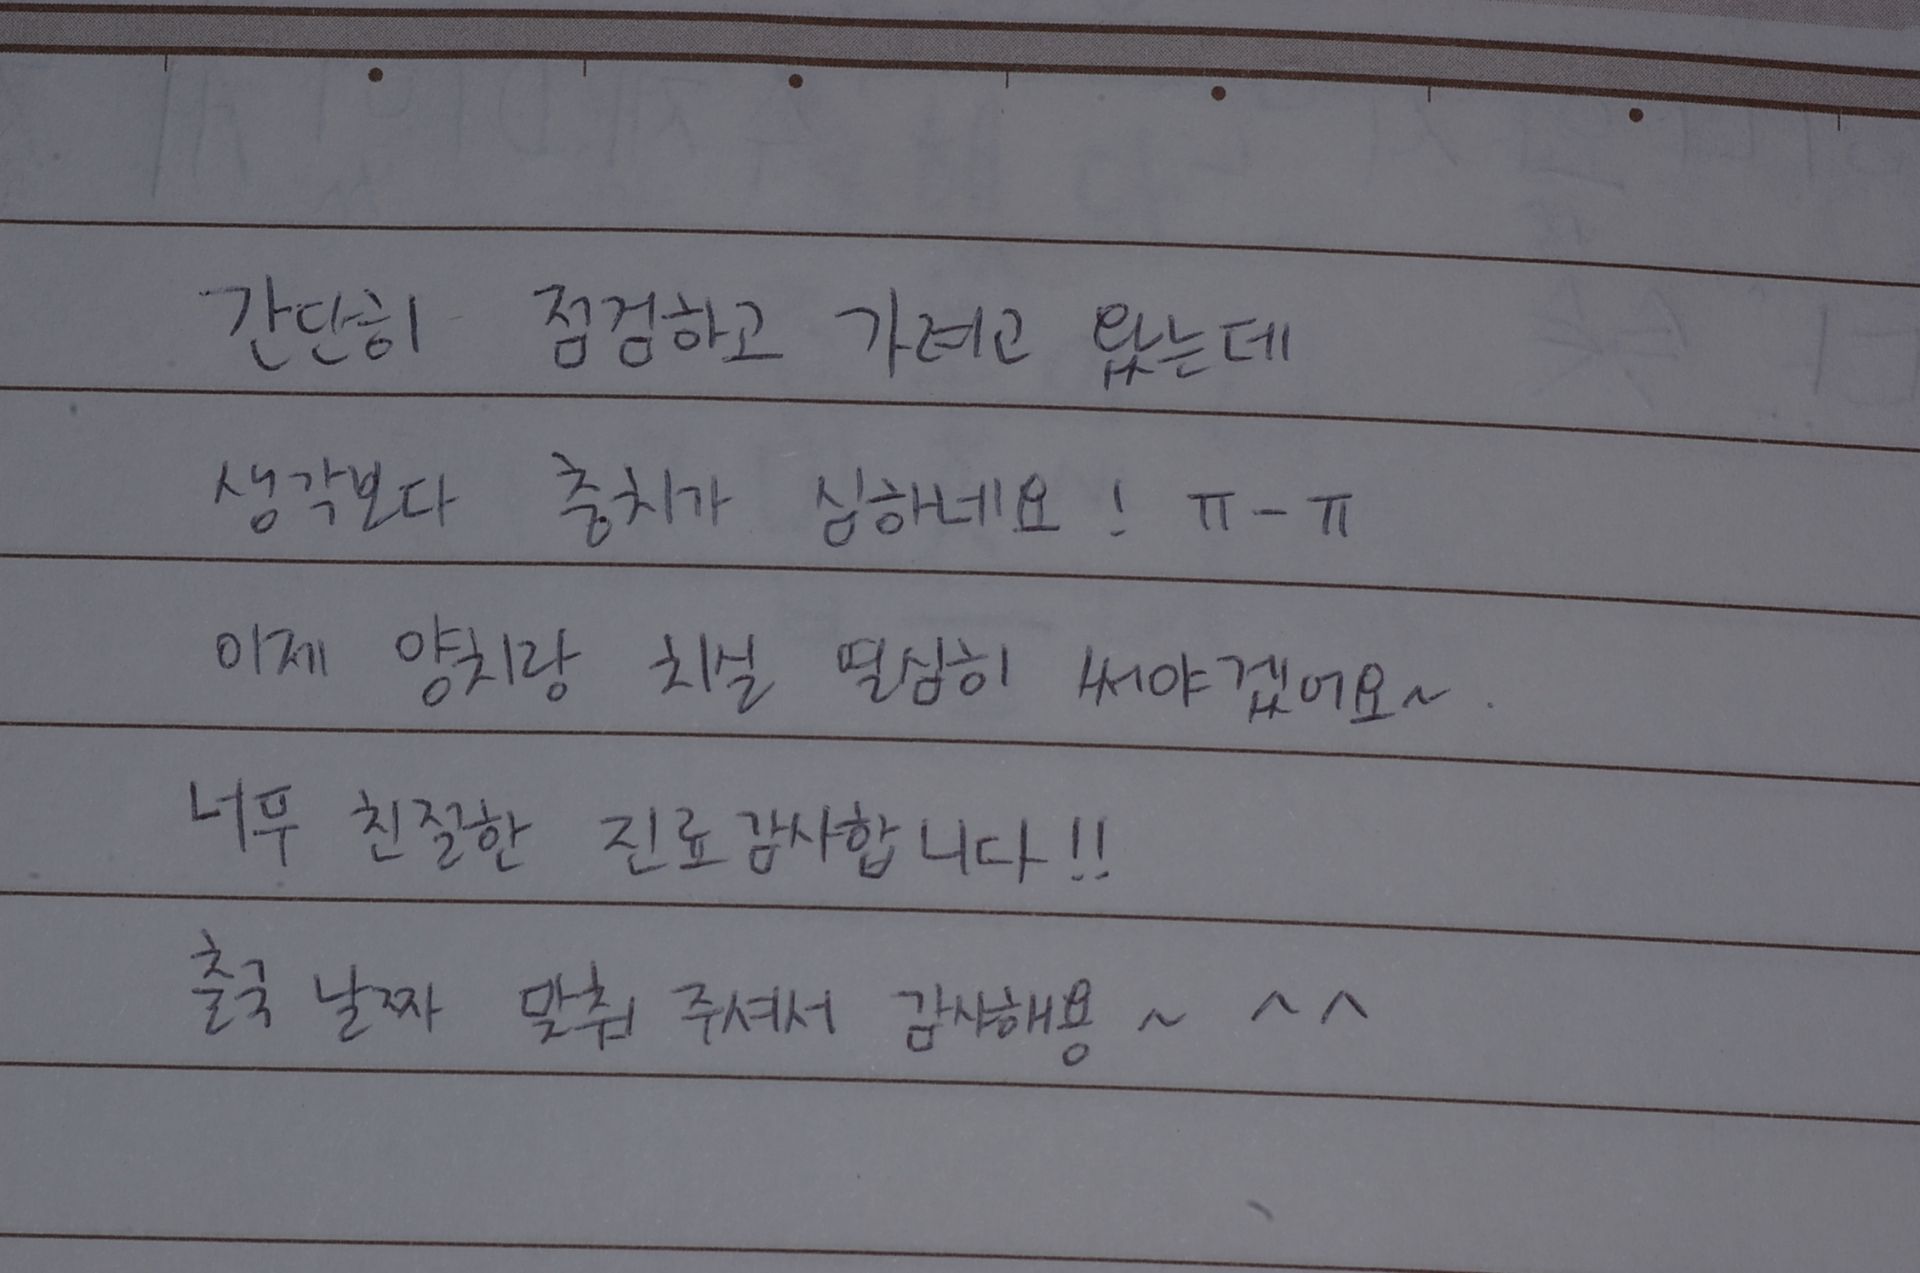 간단히 점검하고 가려고 왔는데
생각보다 충치가 심하네요! ㅠ-ㅠ
이제 양치랑 치실 열심히 써야겠어요~.
너무 친절한 진료감사합니다!!
출국 날짜 맞춰 주셔서 감사해용~ ^^